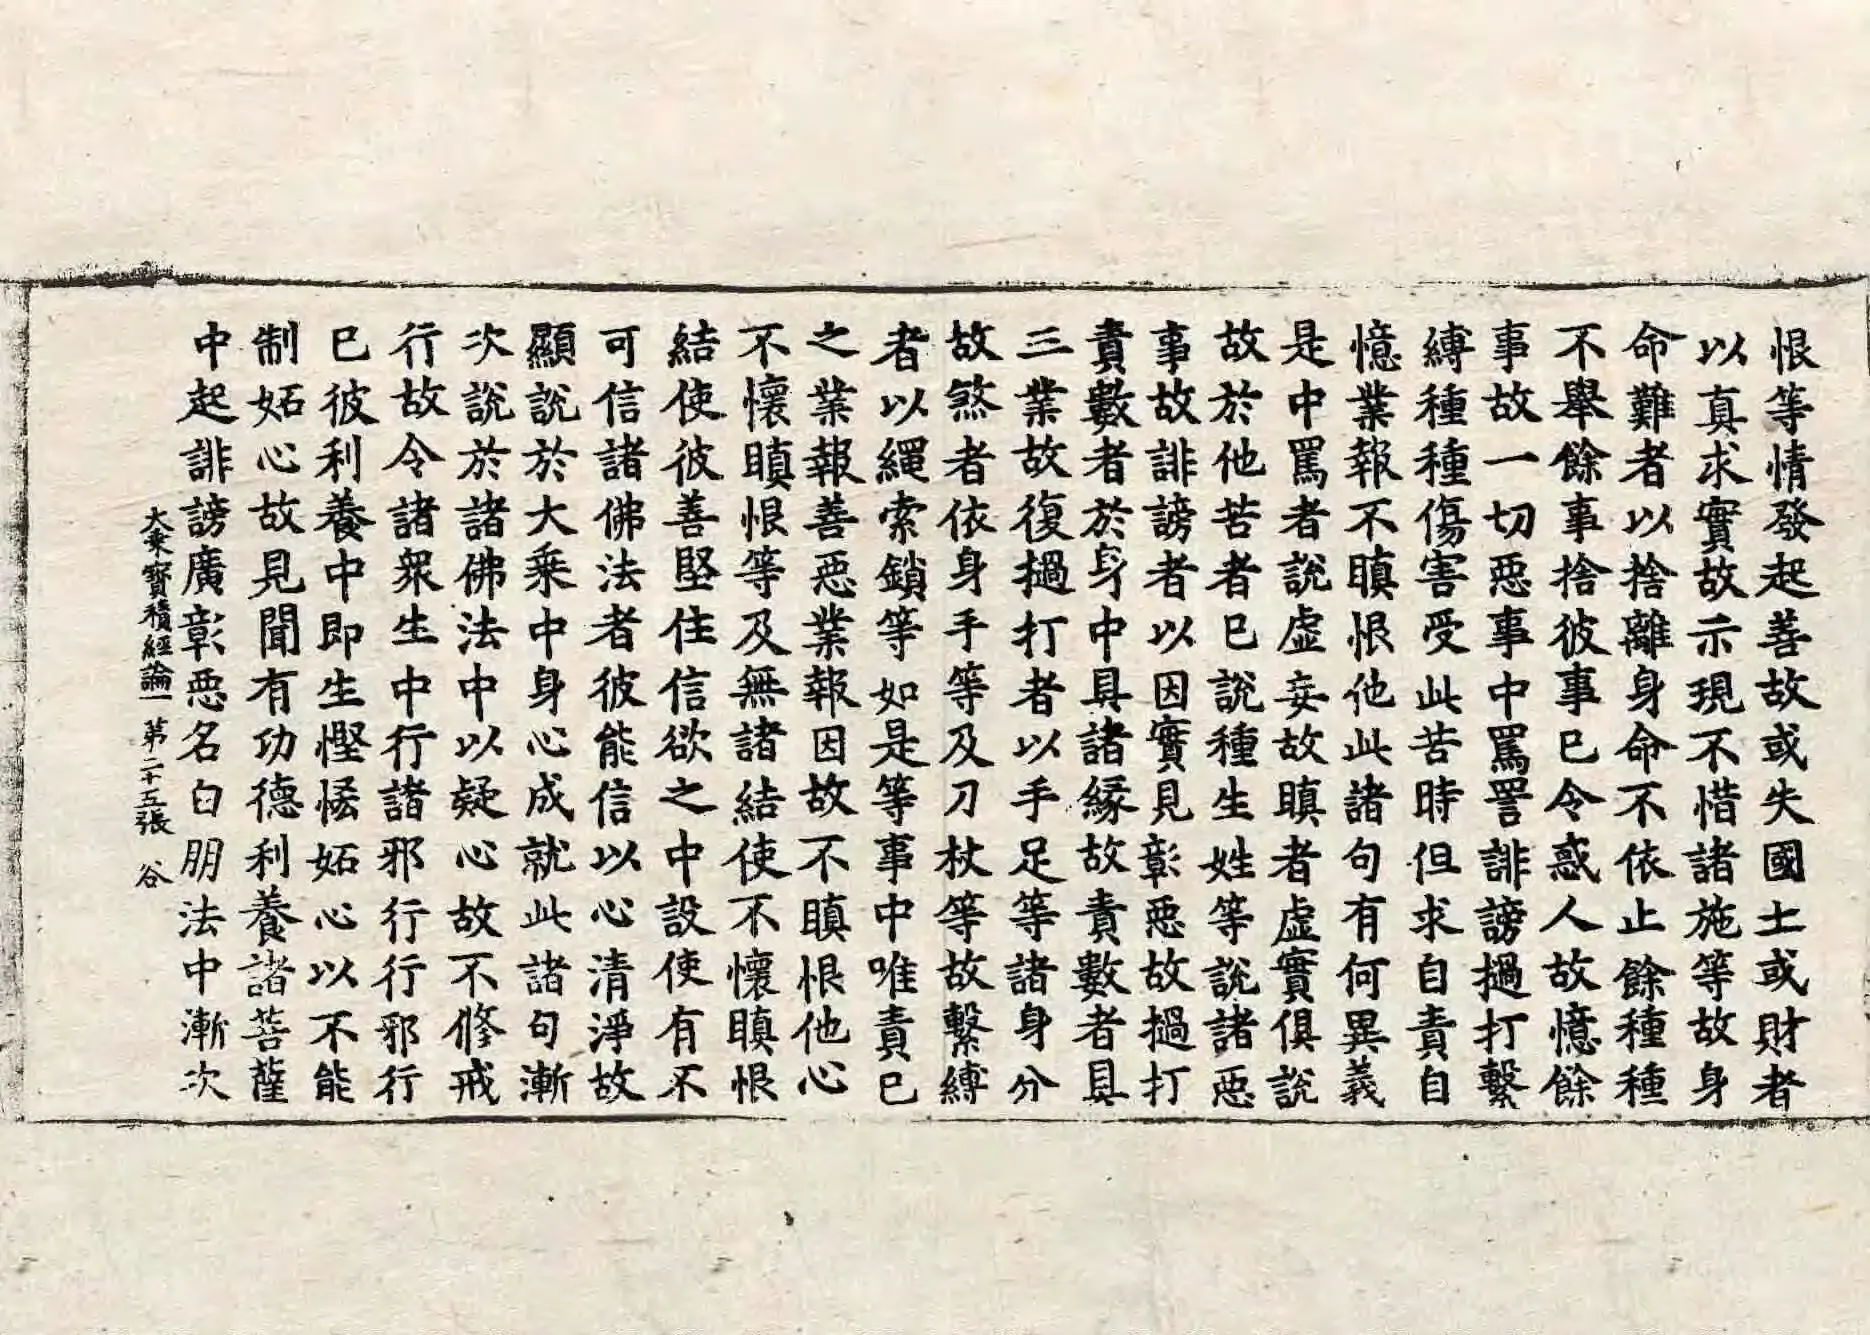 恨等情發起善故或失國土或財者
以真求實故示現不惜諸施等故身
命難者以捨離身命不依止餘種種
不舉餘事捨彼事已令惑人故憶餘
事故一切惡事中罵詈誹謗撾打繫
縛種種傷害受此苦時但求自責自
憶業報不瞋恨他此諸句有何異義
是中罵者說虛妄故瞋者虛實俱說
故於他苦者已說種生姓等說諸惡
事故誹謗者以因實見彰惡故撾打
責數者於身中具諸緣故責數者具
三業故復撾打者以手足等諸身分
故煞者依身手等及刀杖等故繫縛
者以繩索鎖等如是等事中唯責已
之業報善惡業報因故不瞋恨他心
不懷瞋恨等及無諸結使不懷瞋恨
結使彼善堅住信欲之中設使有不
可信諸佛法者彼能信以心清淨故
顯說於大乘中身心成就此諸句漸
次說於諸佛法中以疑心故不修戒
行故令諸眾生中行諸邪行行邪行
已彼利養中即生慳悋妬心以不能
制妬心故見聞有功德利養諸菩薩
中起誹謗廣彰惡名白朋法中漸次
大乘寶積經論一 第二十五張 谷